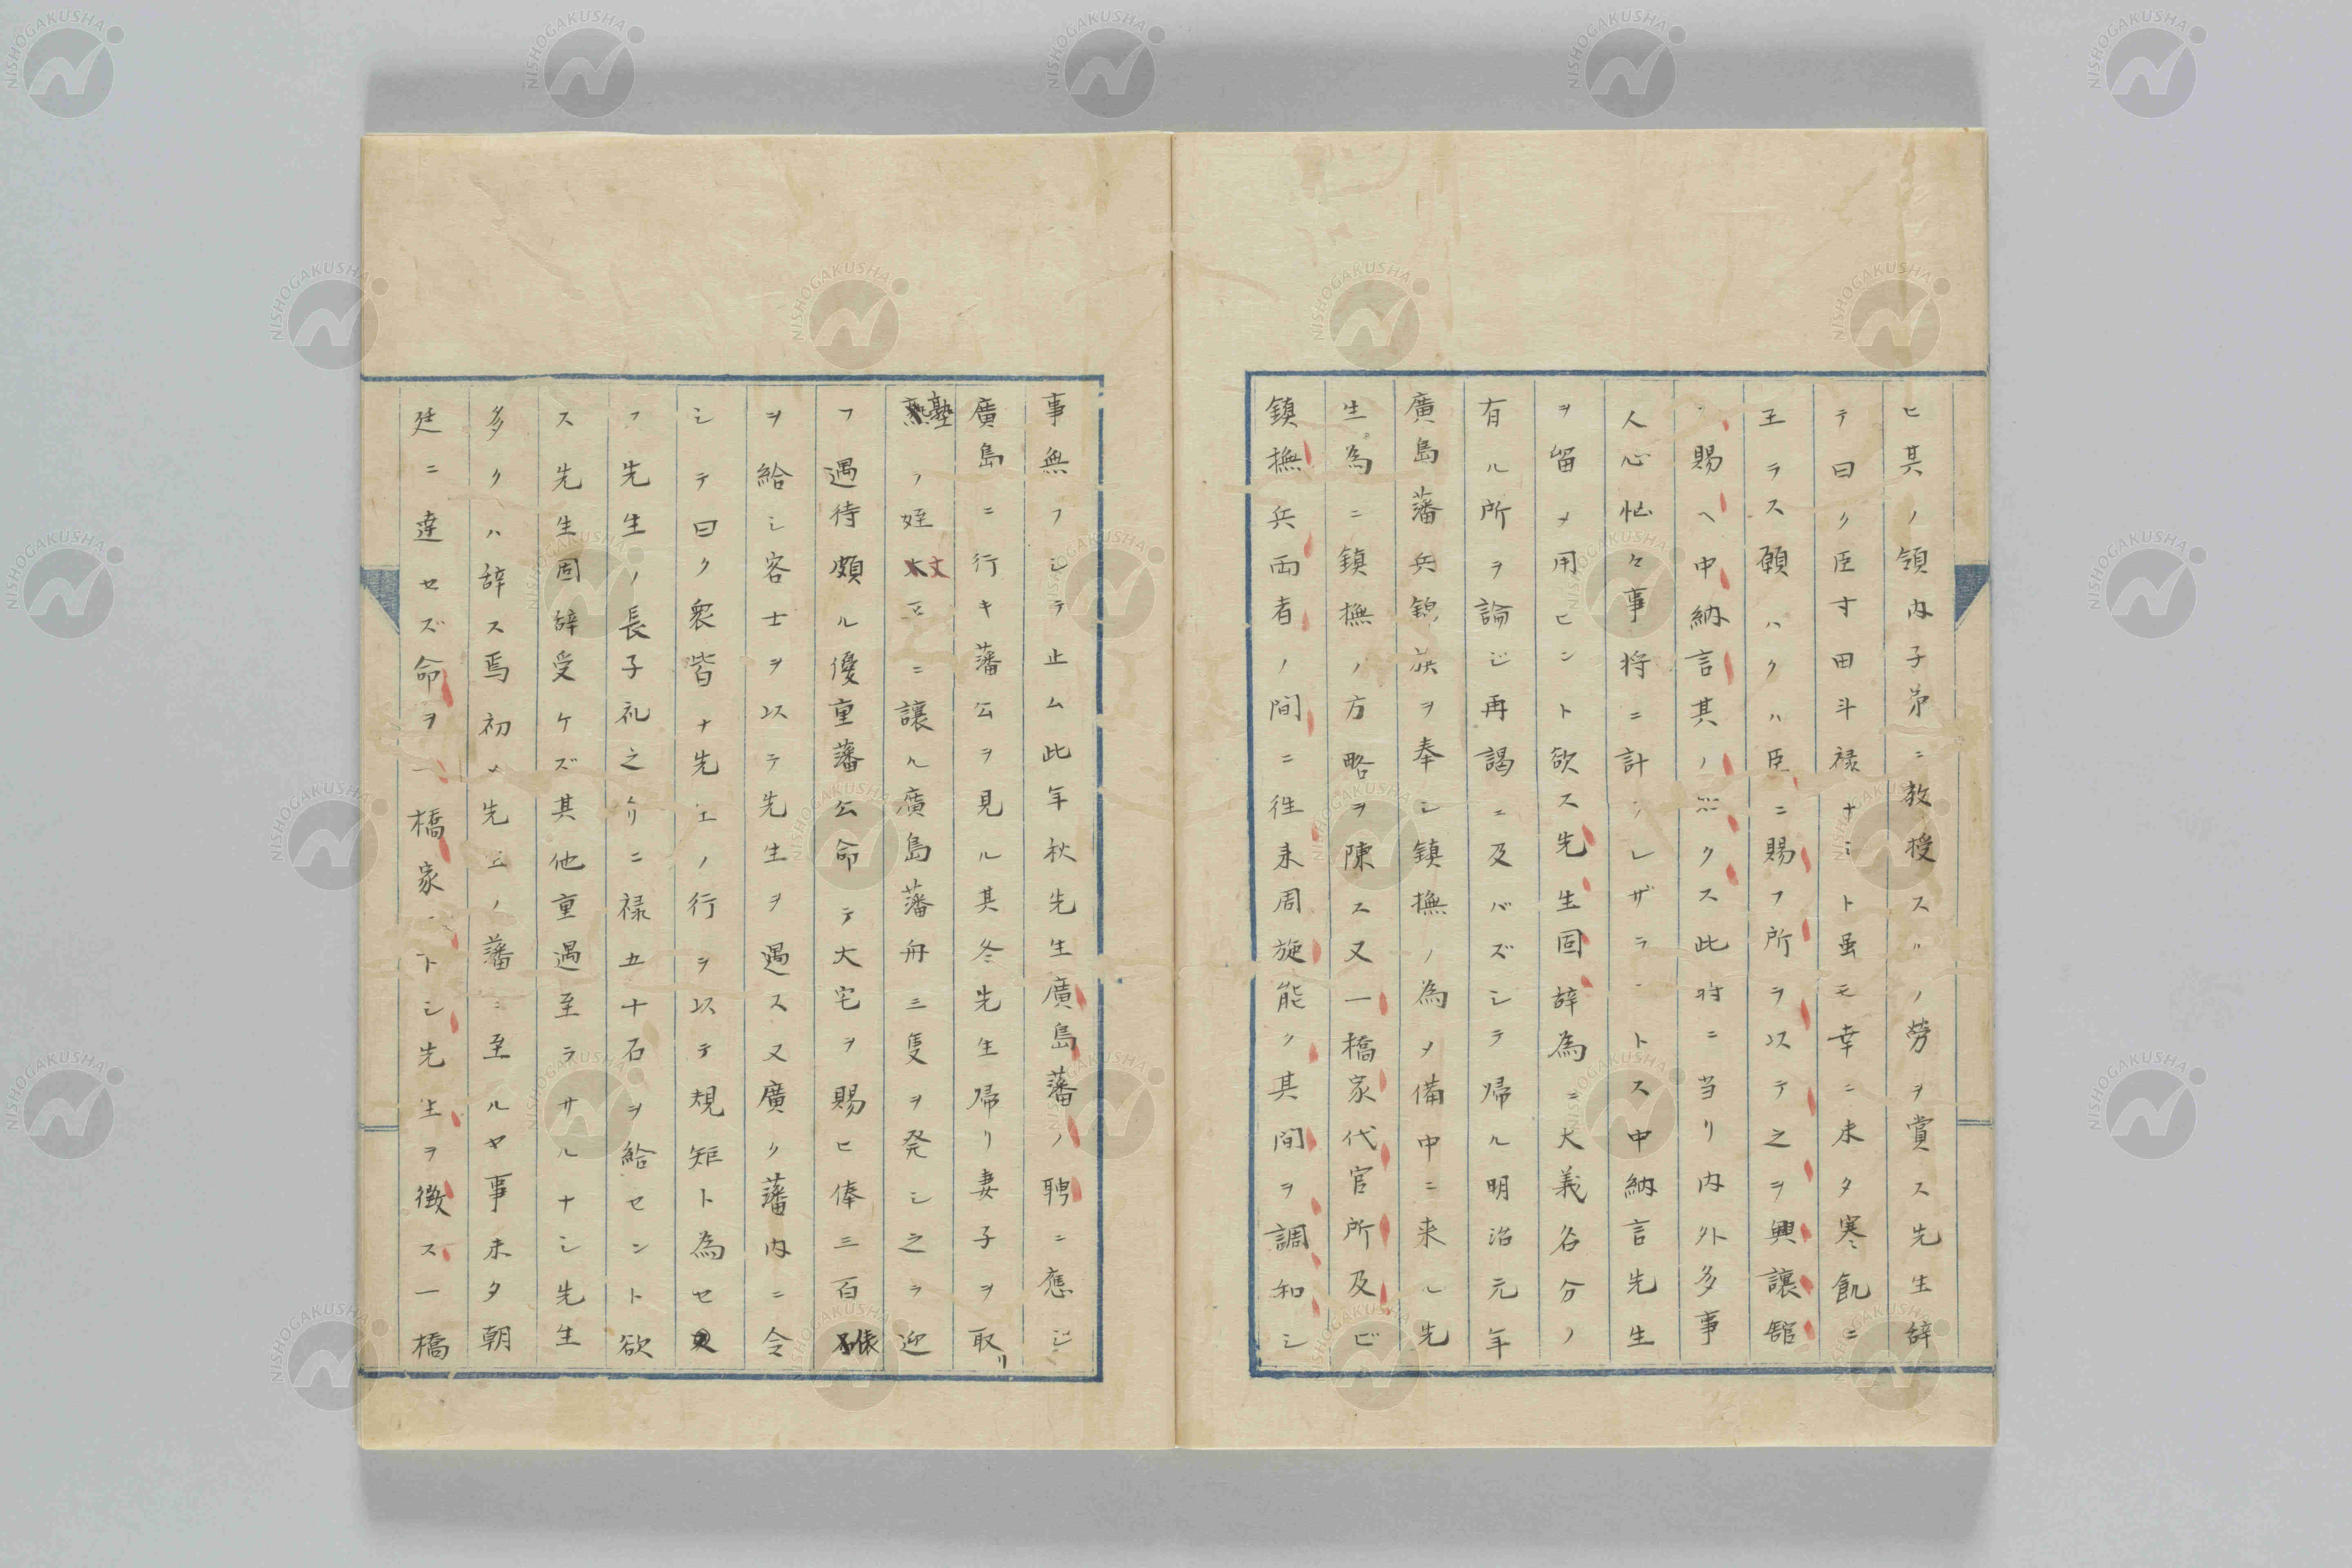 ヒ其ノ領内子弟ニ教授スルノ労ヲ賞ス先生辞
テ曰ク臣寸田斗禄ナシト虽モ幸ニ未タ寒飢ニ
至ラス願ハクハ臣ニ賜フ所ヲ以テ之ヲ興譲館
賜ヘ中納言其ノ クス此時ニ当リ内外多事
人心恟々事将ニ計ラレザラントス中納言先生
ヲ留メ用ヒント欲ス先生固辞為ニ大義名分ノ
有ル所ヲ論ジ再謁ニ及バズシテ帰ル明治元年
廣島藩兵錦旗ヲ奉シ鎮撫ノ為メ備中ニ来ル先
生為ニ鎮撫ノ方略ヲ陳ス又一橋家代官所及ビ
鎮撫兵両者ノ間ニ往来周旋能ク其間ヲ調和シ
事無フシテ止ム此年秋先生廣島藩ノ聘ニ應ジ
廣島ニ行キ藩公ヲ見ル其冬先生帰リ妻子ヲ取リ
塾ノ姪丈平ニ譲ル廣島藩舟三隻ヲ発シ之ヲ迎
フ遇待頗ル優重藩公命テ大宅ヲ賜ヒ俸三百俵
ヲ給シ客士ヲ以テ先生ヲ遇ス又廣ク藩内ニ令
シテ曰ク衆皆ナ先生ノ行ヲ以テ規矩ト為セ又
フ先生ノ長子礼之介ニ禄五十石ヲ給セント欲
ス先生固辞受ケズ其他重遇至ラサルナシ先生
多クハ辞ス焉初メ先生ノ藩ニ至ルヤ事未タ朝
廷ニ達セズ命ヲ一橋家ニトシ先生ヲ徴ス一橋
NISHOGAKUSHA